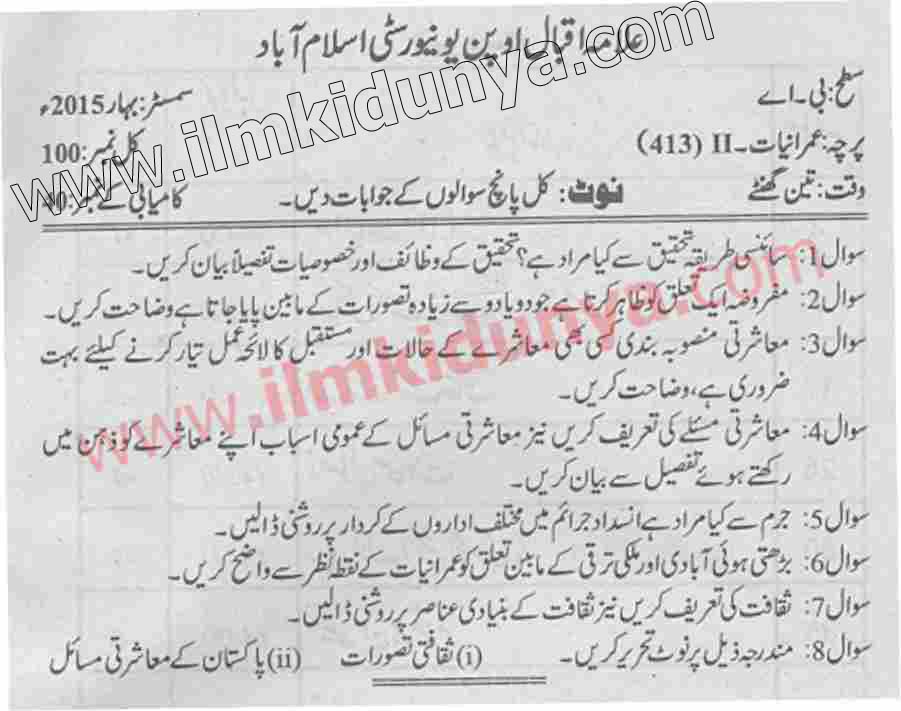 علامہ اقبال اوپن یونیورسٹی اسلام آباد
سطح: بی۔اے سمسٹر: بہار 2015ء
پرچہ: عمرانیات۔II (413) کل نمبر: 100
وقت: تین گھنٹے نوٹ: کل پانچ سوالوں کے جوابات دیں۔ کامیابی کے نمبر: 40
سوال 1: سائنسی طریقہ تحقیق سے کیا مراد ہے؟ تحقیق کے وظائف اور خصوصیات تفصیلاً بیان کریں۔
سوال 2: مفروضہ ایک تعلق کو ظاہر کرتا ہے جو دو یا دو سے زیادہ تصورات کے مابین پایا جاتا ہے وضاحت کریں۔
سوال 3: معاشرتی منصوبہ بندی کسی بھی معاشرے کے حالات اور مستقبل کا لائحہ عمل تیار کرنے کیلئے بہت
ضروری ہے، وضاحت کریں۔
سوال 4: معاشرتی مسئلے کی تعریف کریں نیز معاشرتی مسائل کے عمومی اسباب اپنے معاشرے کو ذہن میں
رکھتے ہوئے تفصیل سے بیان کریں۔
سوال 5: جرم سے کیا مراد ہے انسداد جرائم میں مختلف اداروں کے کردار پر روشنی ڈالیں۔
سوال 6: بڑھتی ہوئی آبادی اور ملکی ترقی کے مابین تعلق کو عمرانیات کے نقطہ نظر سے واضح کریں۔
سوال 7: ثقافت کی تعریف کریں نیز ثقافت کے بنیادی عناصر پر روشنی ڈالیں۔
سوال 8: مندرجہ ذیل پر نوٹ تحریر کریں۔ (i) ثقافتی تصورات (ii) پاکستان کے معاشرتی مسائل
www.ilmkidunya.com
www.ilmkidunya.com